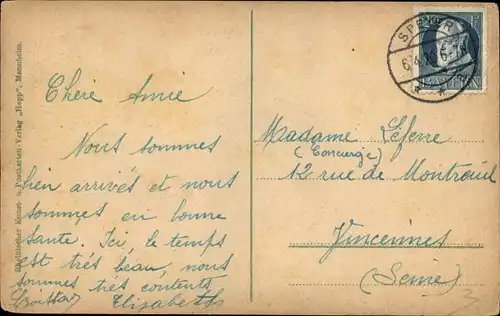 Chère Amie
Nous sommes
bien arrivés et nous
sommes en bonne
sante. Ici, le temps
est très beau, nous
sommes très contents
Elisabeth
Madame Lefevre
(Concierge)
12 rue de Montreuil
Vincennes
(Seine)
Rheinischer Kunst- u. Postkarten-Verlag „Hepp", Mannheim.
SPEYER
BAYERN
3